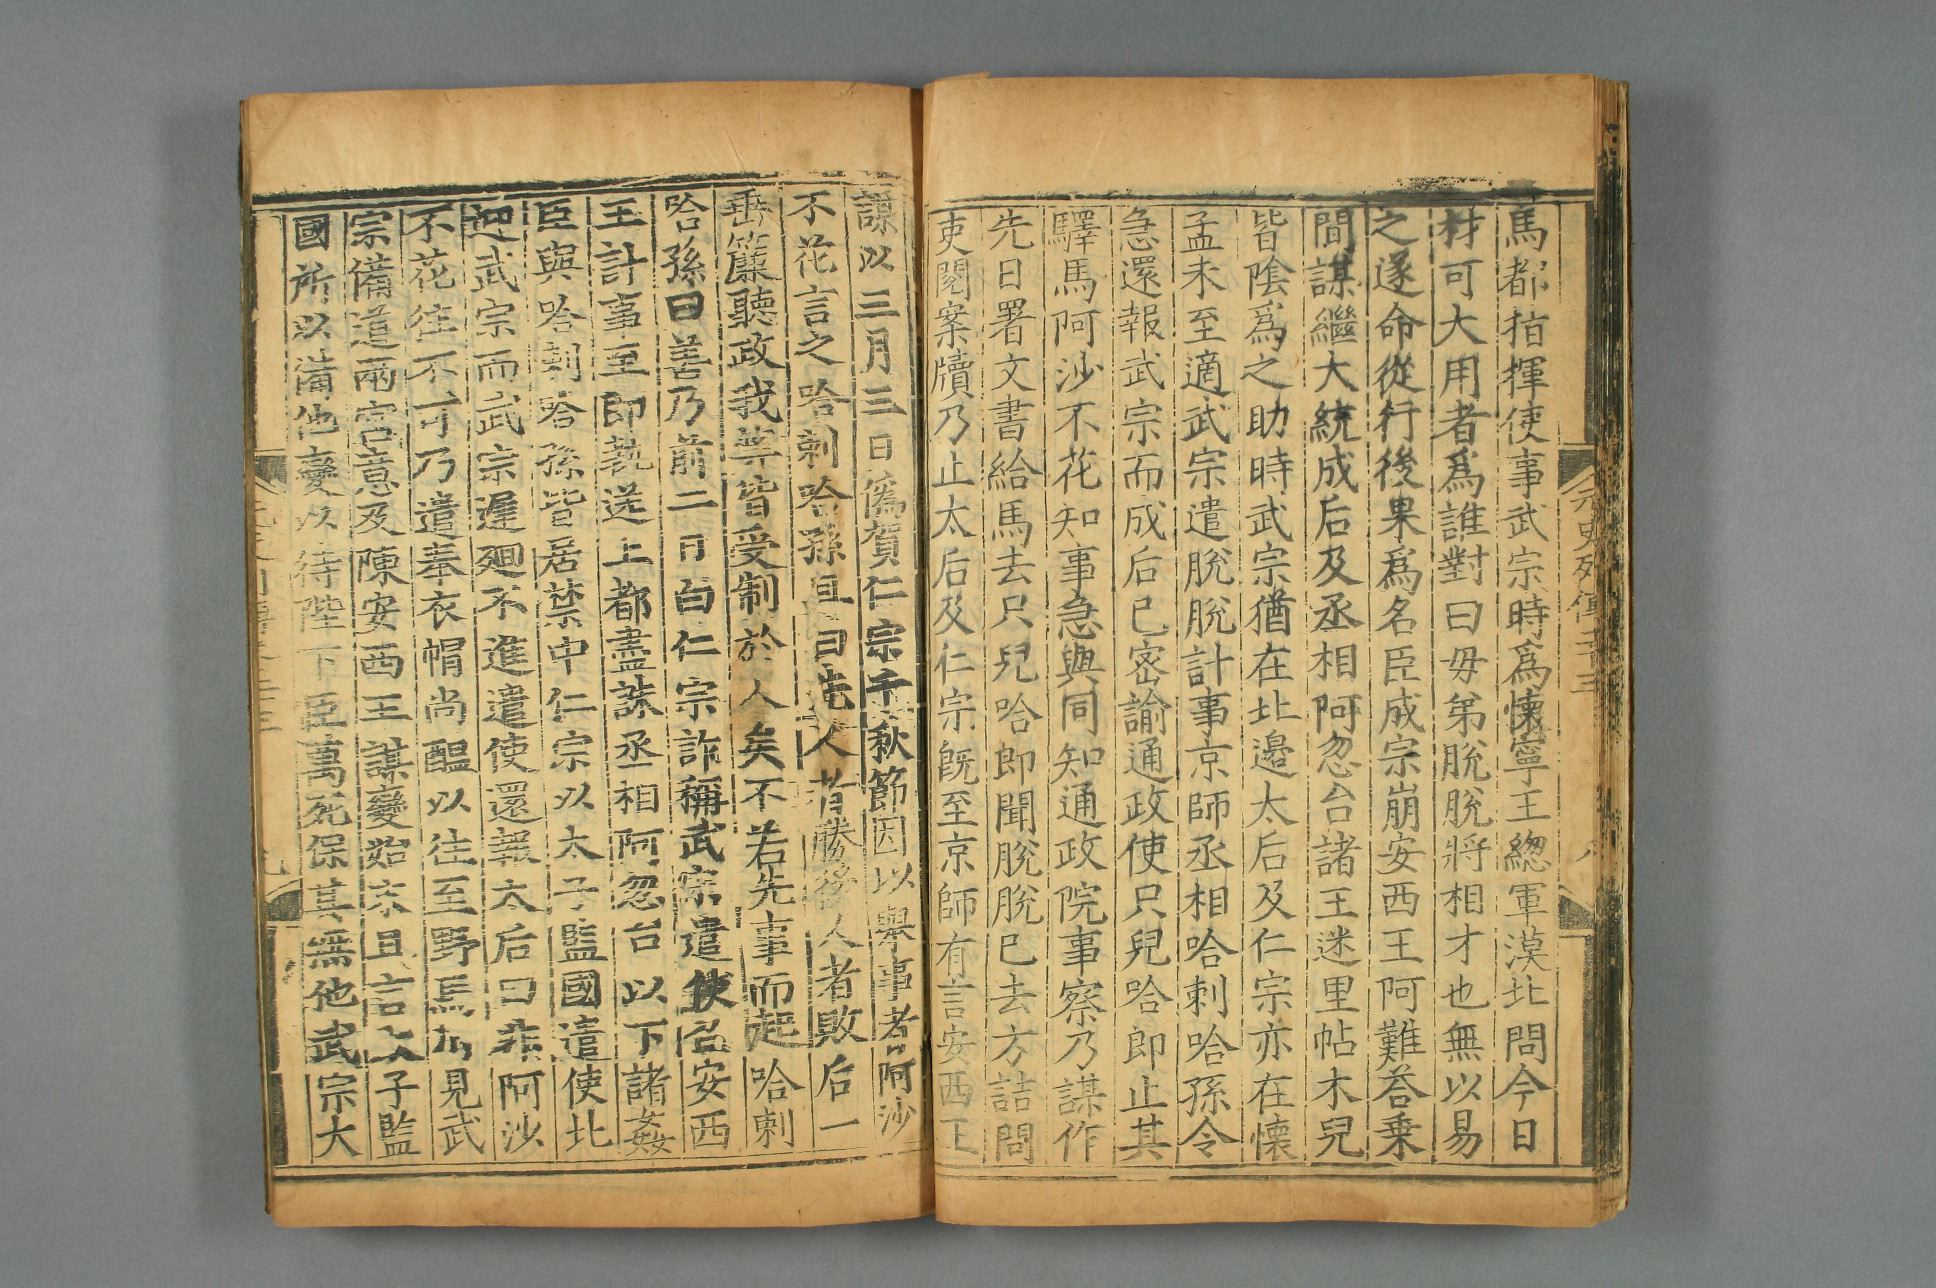 馬都指揮使事武宗時爲懷寧王總軍漠北問今日
材可大用者爲誰對曰毋弟脫脫將相才也無以易
之遂命從行後果爲名臣成宗崩安西王阿難荅乗
間謀繼大統成后及丞相阿忽台諸王迷里帖木兒
皆隂爲之助時武宗猶在北邉太后及仁宗亦在懷
孟未至適武宗遣脫脫計事京師丞相哈剌哈孫令
急還報武宗而成后已宻諭通政使只兒哈郎止其
驛馬阿沙不花知事急與同知通政院事察乃謀作
先日署文書給馬去只兒哈郎聞脫脫已去方詰問
吏閱案牘乃止太后及仁宗旣至京師有言安西王
謀以三月三日僞賀仁宗千秋節因以舉事者阿沙
不花言之哈剌哈孫且曰先人者勝後人者敗后一
垂簾聽政我等皆受制於人矣不若先事而起哈剌
哈孫曰善乃前二日白仁宗詐稱武宗遣使召安西
王計事至即執送上都盡誅丞相阿忽台以下諸姦
臣與哈剌哈孫皆居禁中仁宗以太子監國遣使北
迎武宗而武宗遲廻不進遣使還報太后曰非阿沙
不花往不可乃遣奉衣帽尚醖以往至野馬川見武
宗備道兩宮意及陳安西王謀變始末且言太子監
國所以備他變以待陛下臣萬死保其無他武宗大
元史列傳二十三
八
九